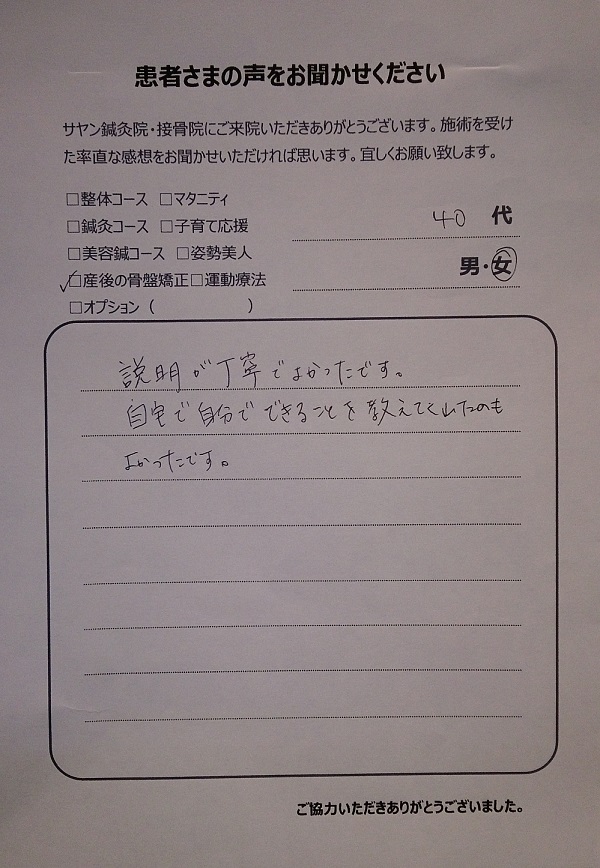 患者さまの声をお聞かせください
サヤン鍼灸院・接骨院にご来院いただきありがとうございます。施術を受け
た率直な感想をお聞かせいただければ思います。宜しくお願い致します。
□整体コース □マタニティ
□鍼灸コース □子育て応援
40 代
□美容鍼コース □姿勢美人
男・女
☑産後の骨盤矯正□運動療法
□オプション（ ）
説明が丁寧でよかったです。
自宅で自分でできることを教えてくれたのも
よかったです。
ご協力いただきありがとうございました。